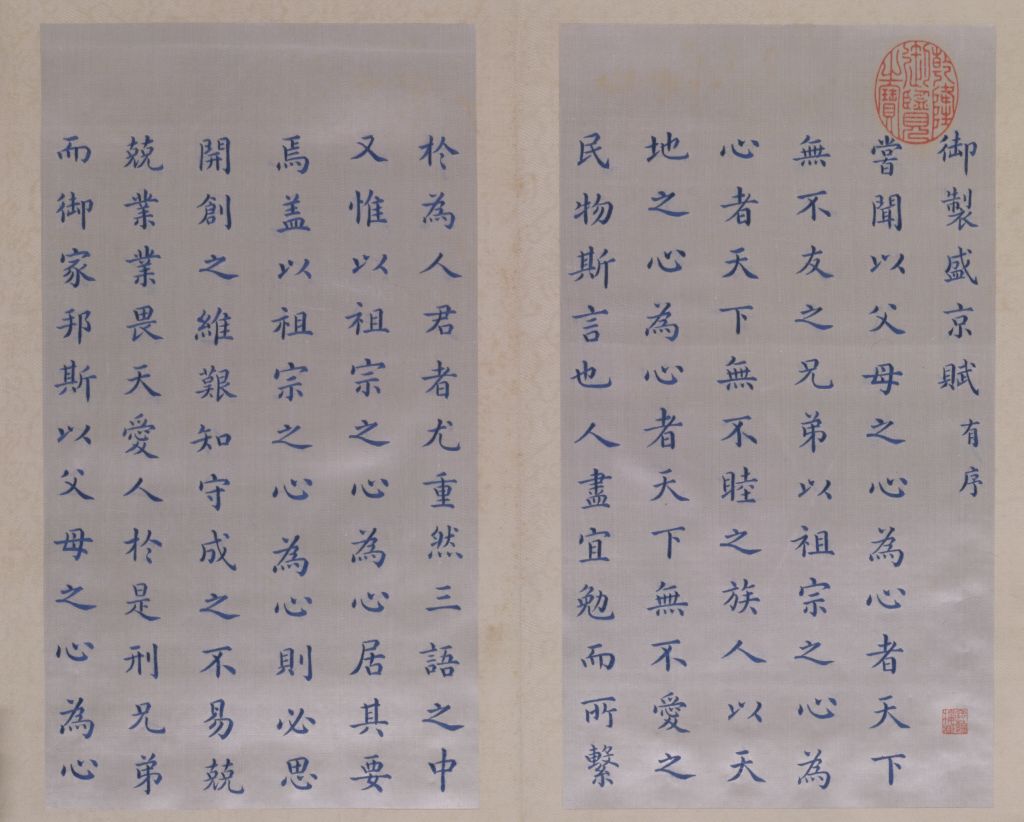 御製盛京賦有序
嘗聞以父母之心為心者天下
無不友之兄弟以祖宗之心為
心者天下無不睦之族人以天
地之心為心者天下無不愛之
民物斯言也人盡宜勉而所繫
於為人君者尤重然三語之中
又惟以祖宗之心為心居其要
焉盖以祖宗之心為心則必思
開創之維艱知守成之不易兢
兢業業畏天愛人於是刑兄弟
而御家邦斯以父母之心為心
乾隆御覽之寶